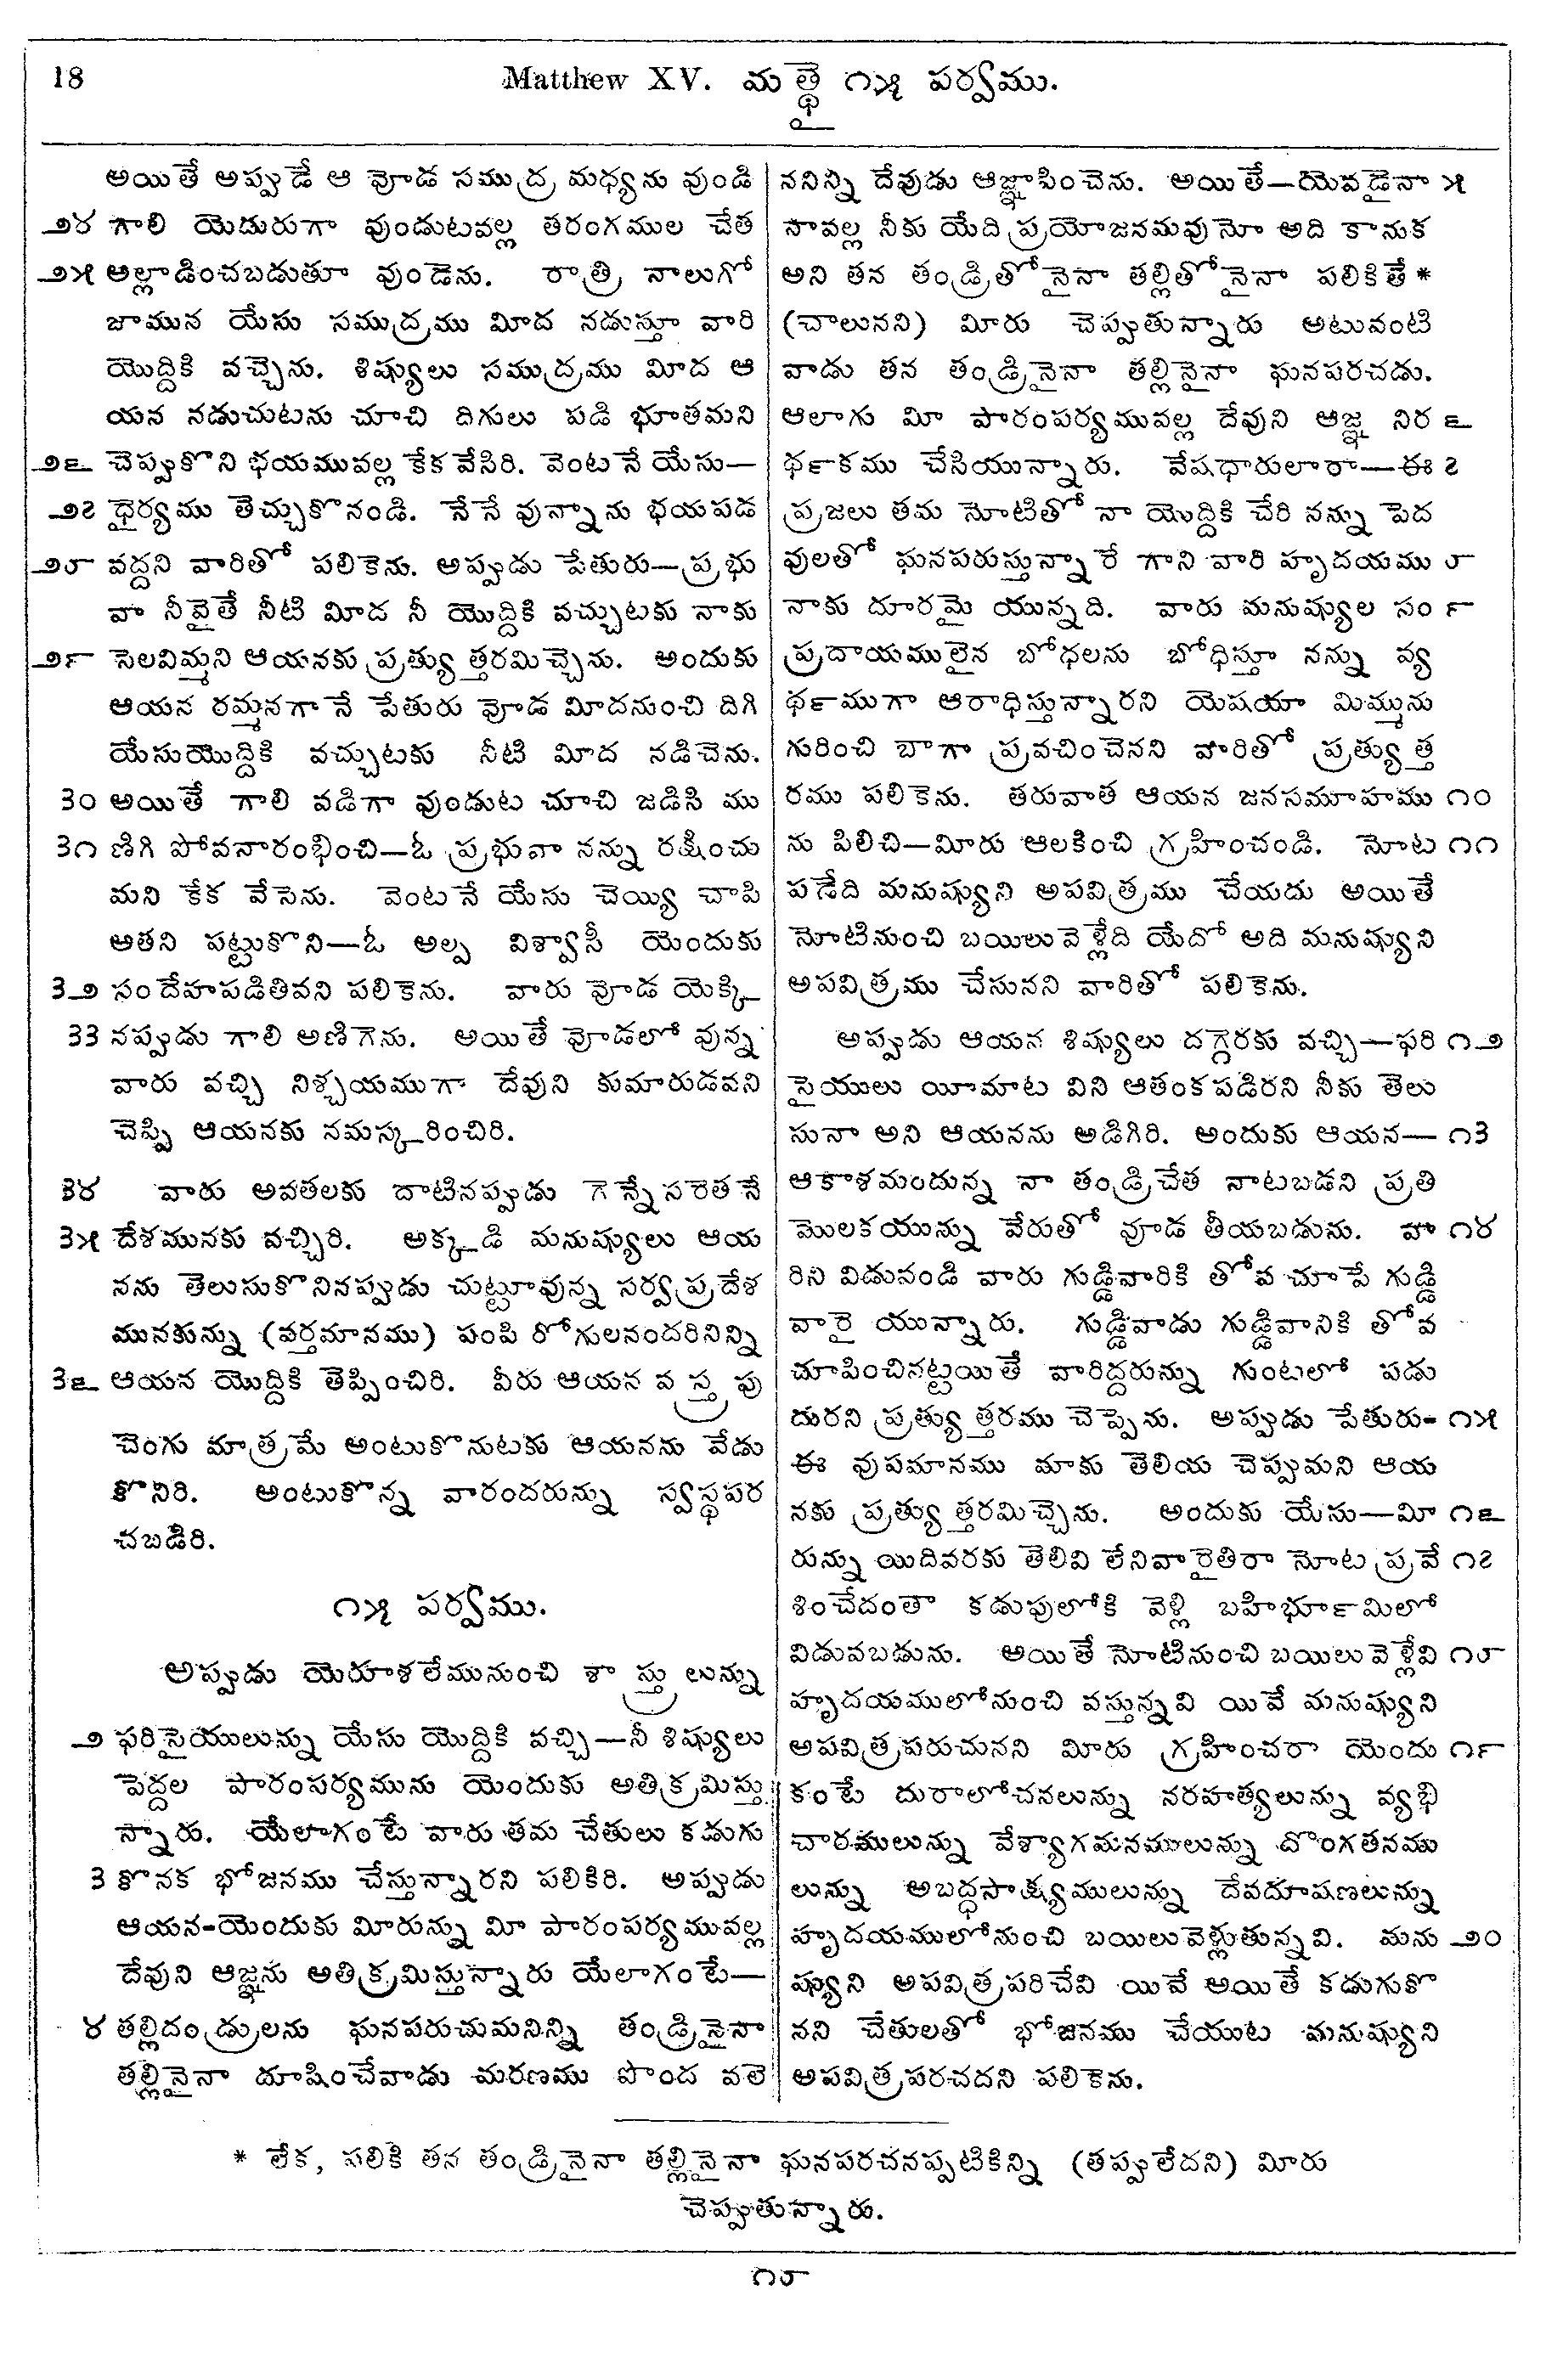 18
Matthew XV. మత్థై ౧౫ పర్వము.
అయితే అప్పుడే ఆ వోడ సముద్ర మధ్యను వుండి
౨౪ గాలి యెదురుగా వుండుటవల్ల తరంగముల చేత
౨౫ అల్లాడించబడుతూ వుండెను. రాత్రి నాలుగో
జామున యేసు సముద్రము మీద నడుస్తూ వారి
యొద్దికి వచ్చెను. శిష్యులు సముద్రము మీద ఆ
యన నడుచుటను చూచి దిగులు పడి భూతమని
౨౬ చెప్పుకొని భయమువల్ల కేక వేసిరి. వెంటనే యేసు—
౨౭ ధైర్యము తెచ్చుకొనండి. నేనే వున్నాను భయపడ
౨౮ వద్దని వారితో పలికెను. అప్పుడు పేతురు—ప్రభు
వా నీవైతే నీటి మీద నీ యొద్దికి వచ్చుటకు నాకు
౨౯ సెలవిమ్మని ఆయనకు ప్రత్యుత్తరమిచ్చెను. అందుకు
ఆయన రమ్మనగానే పేతురు వోడ మీదనుంచి దిగి
యేసుయొద్దికి వచ్చుటకు నీటి మీద నడిచెను.
౩౦ అయితే గాలి వడిగా వుండుట చూచి జడిసి ము
౩౧ ణిగి పోవనారంభించి—ఓ ప్రభువా నన్ను రక్షించు
మని కేక వేసెను. వెంటనే యేసు చెయ్యి చాపి
ఆతని పట్టుకొని—ఓ అల్ప విశ్వాసీ యెందుకు
౩౨ సందేహపడితివని పలికెను. వారు వోడ యెక్కి
౩౩ నప్పుడు గాలి అణిగెను. అయితే వోడలో వున్న
వారు వచ్చి నిశ్చయముగా దేవుని కుమారుడవని
చెప్పి ఆయనకు నమస్కరించిరి.
౩౪ వారు అవతలకు దాటినప్పుడు గెన్నేసరెతనే
౩౫ దేశమునకు వచ్చిరి. అక్కడి మనుష్యులు ఆయ
నను తెలుసుకొనినప్పుడు చుట్టూవున్న సర్వ ప్రదేశ
మునకున్ను (వర్తమానము) పంపి రోగులనందరినిన్ని
౩౬ ఆయన యొద్దికి తెప్పించిరి. వీరు ఆయన వస్త్రపు
చెంగు మాత్రమే అంటుకొనుటకు ఆయనను వేడు
కొనిరి. అంటుకొన్న వారందరున్ను స్వస్థపర
చబడిరి.
౧౫ పర్వము.
అప్పుడు యెరూశలేమునుంచి శాస్త్రులున్ను
౨ ఫరిసైయులున్ను యేసు యొద్దికి వచ్చి—నీ శిష్యులు
పెద్దల పారంపర్యమును యెందుకు అతిక్రమిస్తు
న్నారు. యేలాగంటే వారు తమ చేతులు కడుగు
౩ కొనక భోజనము చేస్తున్నారని పలికిరి. అప్పుడు
ఆయన-యెందుకు మీరున్ను మీ పారంపర్యమువల్ల
దేవుని ఆజ్ఞను అతిక్రమిస్తున్నారు యేలాగంటే—
౪ తల్లిదండ్రులను ఘనపరుచుమనిన్ని తండ్రినైనా
తల్లినైనా దూషించేవాడు మరణము పొంద వలె
ననిన్ని దేవుడు ఆజ్ఞాపించెను. అయితే—యెవడైనా ౫
నావల్ల నీకు యేది ప్రయోజనమవునో అది కానుక
అని తన తండ్రితోనైనా తల్లితోనైనా పలికితే *
(చాలునని) మీరు చెప్పుతున్నారు అటువంటి
వాడు తన తండ్రినైనా తల్లినైనా ఘనపరచడు.
ఆలాగు మీ పారంపర్యమువల్ల దేవుని ఆజ్ఞ నిర ౬
థ౯కము చేసియున్నారు. వేషధారులారా—ఈ ౭
ప్రజలు తమ నోటితో నా యొద్దికి చేరి నన్ను పెద
వులతో ఘనపరుస్తున్నారే గాని వారి హృదయము ౮
నాకు దూరమై యున్నది. వారు మనుష్యుల సం ౯
ప్రదాయములైన బోధలను బోధిస్తూ నన్ను వ్య
థ౯ముగా ఆరాధిస్తున్నారని యెషయా మిమ్మును
గురించి బాగా ప్రవచించెనని వారితో ప్రత్యుత్త
రము పలికెను. తరువాత ఆయన జనసమూహము ౧౦
ను పిలిచి—మీరు ఆలకించి గ్రహించండి. నోట ౧౧
పడేది మనుష్యుని అపవిత్రము చేయదు అయితే
నోటినుంచి బయిలువెళ్లేది యేదో అది మనుష్యుని
అపవిత్రము చేసునని వారితో పలికెను.
అప్పుడు ఆయన శిష్యులు దగ్గెరకు వచ్చి—ఫరి ౧౨
సైయులు యీమాట విని ఆతంకపడిరని నీకు తెలు
సునా అని ఆయనను అడిగిరి. అందుకు ఆయన— ౧౩
ఆకాశమందున్న నా తండ్రిచేత నాటబడని ప్రతి
మొలకయున్ను వేరుతో వూడ తీయబడును. వా ౧౪
రిని విడునండి వారు గుడ్డివారికి తోవ చూపే గుడ్డి
వారై యున్నారు. గుడ్డివాడు గుడ్డివానికి తోవ
చూపించినట్టయితే వారిద్దరున్ను గుంటలో పడు
దురని ప్రత్యుత్తరము చెప్పెను. అప్పుడు పేతురు- ౧౫
ఈ వుపమానము మాకు తెలియ చెప్పుమని ఆయ
నకు ప్రత్యుత్తరమిచ్చెను. అందుకు యేసు—మీ ౧౬
రున్ను యిదివరకు తెలివి లేనివారైతిరా నోట ప్రవే ౧౭
శించేదంతా కడుపులోకి వెళ్లి బహిభూ౯మిలో
విడువబడును. అయితే నోటినుంచి బయిలు వెళ్లేవి ౧౮
హృదయములోనుంచి వస్తున్నవి యివే మనుష్యుని
అపవిత్రపరుచునని మీరు గ్రహించరా యెందు ౧౯
కంటే దురాలోచనలున్ను నరహత్యలున్ను వ్యభి
చారములున్ను వేశ్యాగమనములున్ను దొంగతనము
లున్ను అబద్ధసాక్ష్యములున్ను దేవదూషణలున్ను
హృదయములోనుంచి బయిలువెళ్లుతున్నవి. మను ౨౦
ష్యుని అపవిత్రపరిచేవి యివే అయితే కడుగుకొ
నని చేతులతో భోజనము చేయుట మనుష్యుని
అపవిత్రపరచదని పలికెను.
* లేక, పలికి తన తండ్రినైనా తల్లినైనా ఘనపరచనప్పటికిన్ని (తప్పులేదని) మీరు
చెప్పుతున్నారు.
౧౮